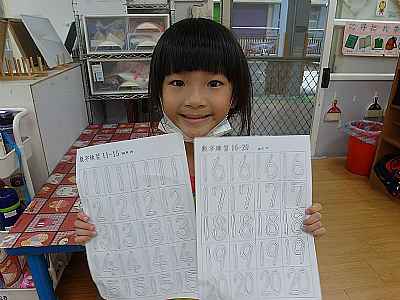 數字練習 11-15
11 11 11 11
12 12 12 12
13 13 13 13
14 14 14 14
15 15 15 15
數字練習 16-20
16 16 16 16
17 17 17 17
18 18 18 18
19 19 19 19
20 20 20 20